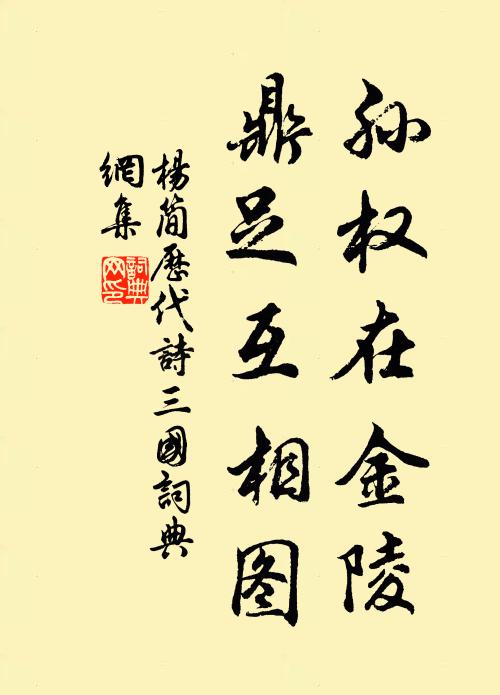 孙权在金陵
鼎足互相图
楊简歷代詩三國詞典
網集
詞典
网印